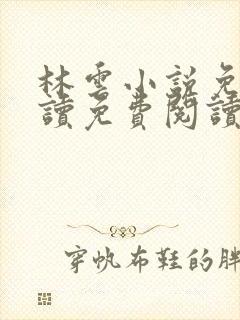 林雲小說免
讀免費閱讀
穿帆布鞋的胖